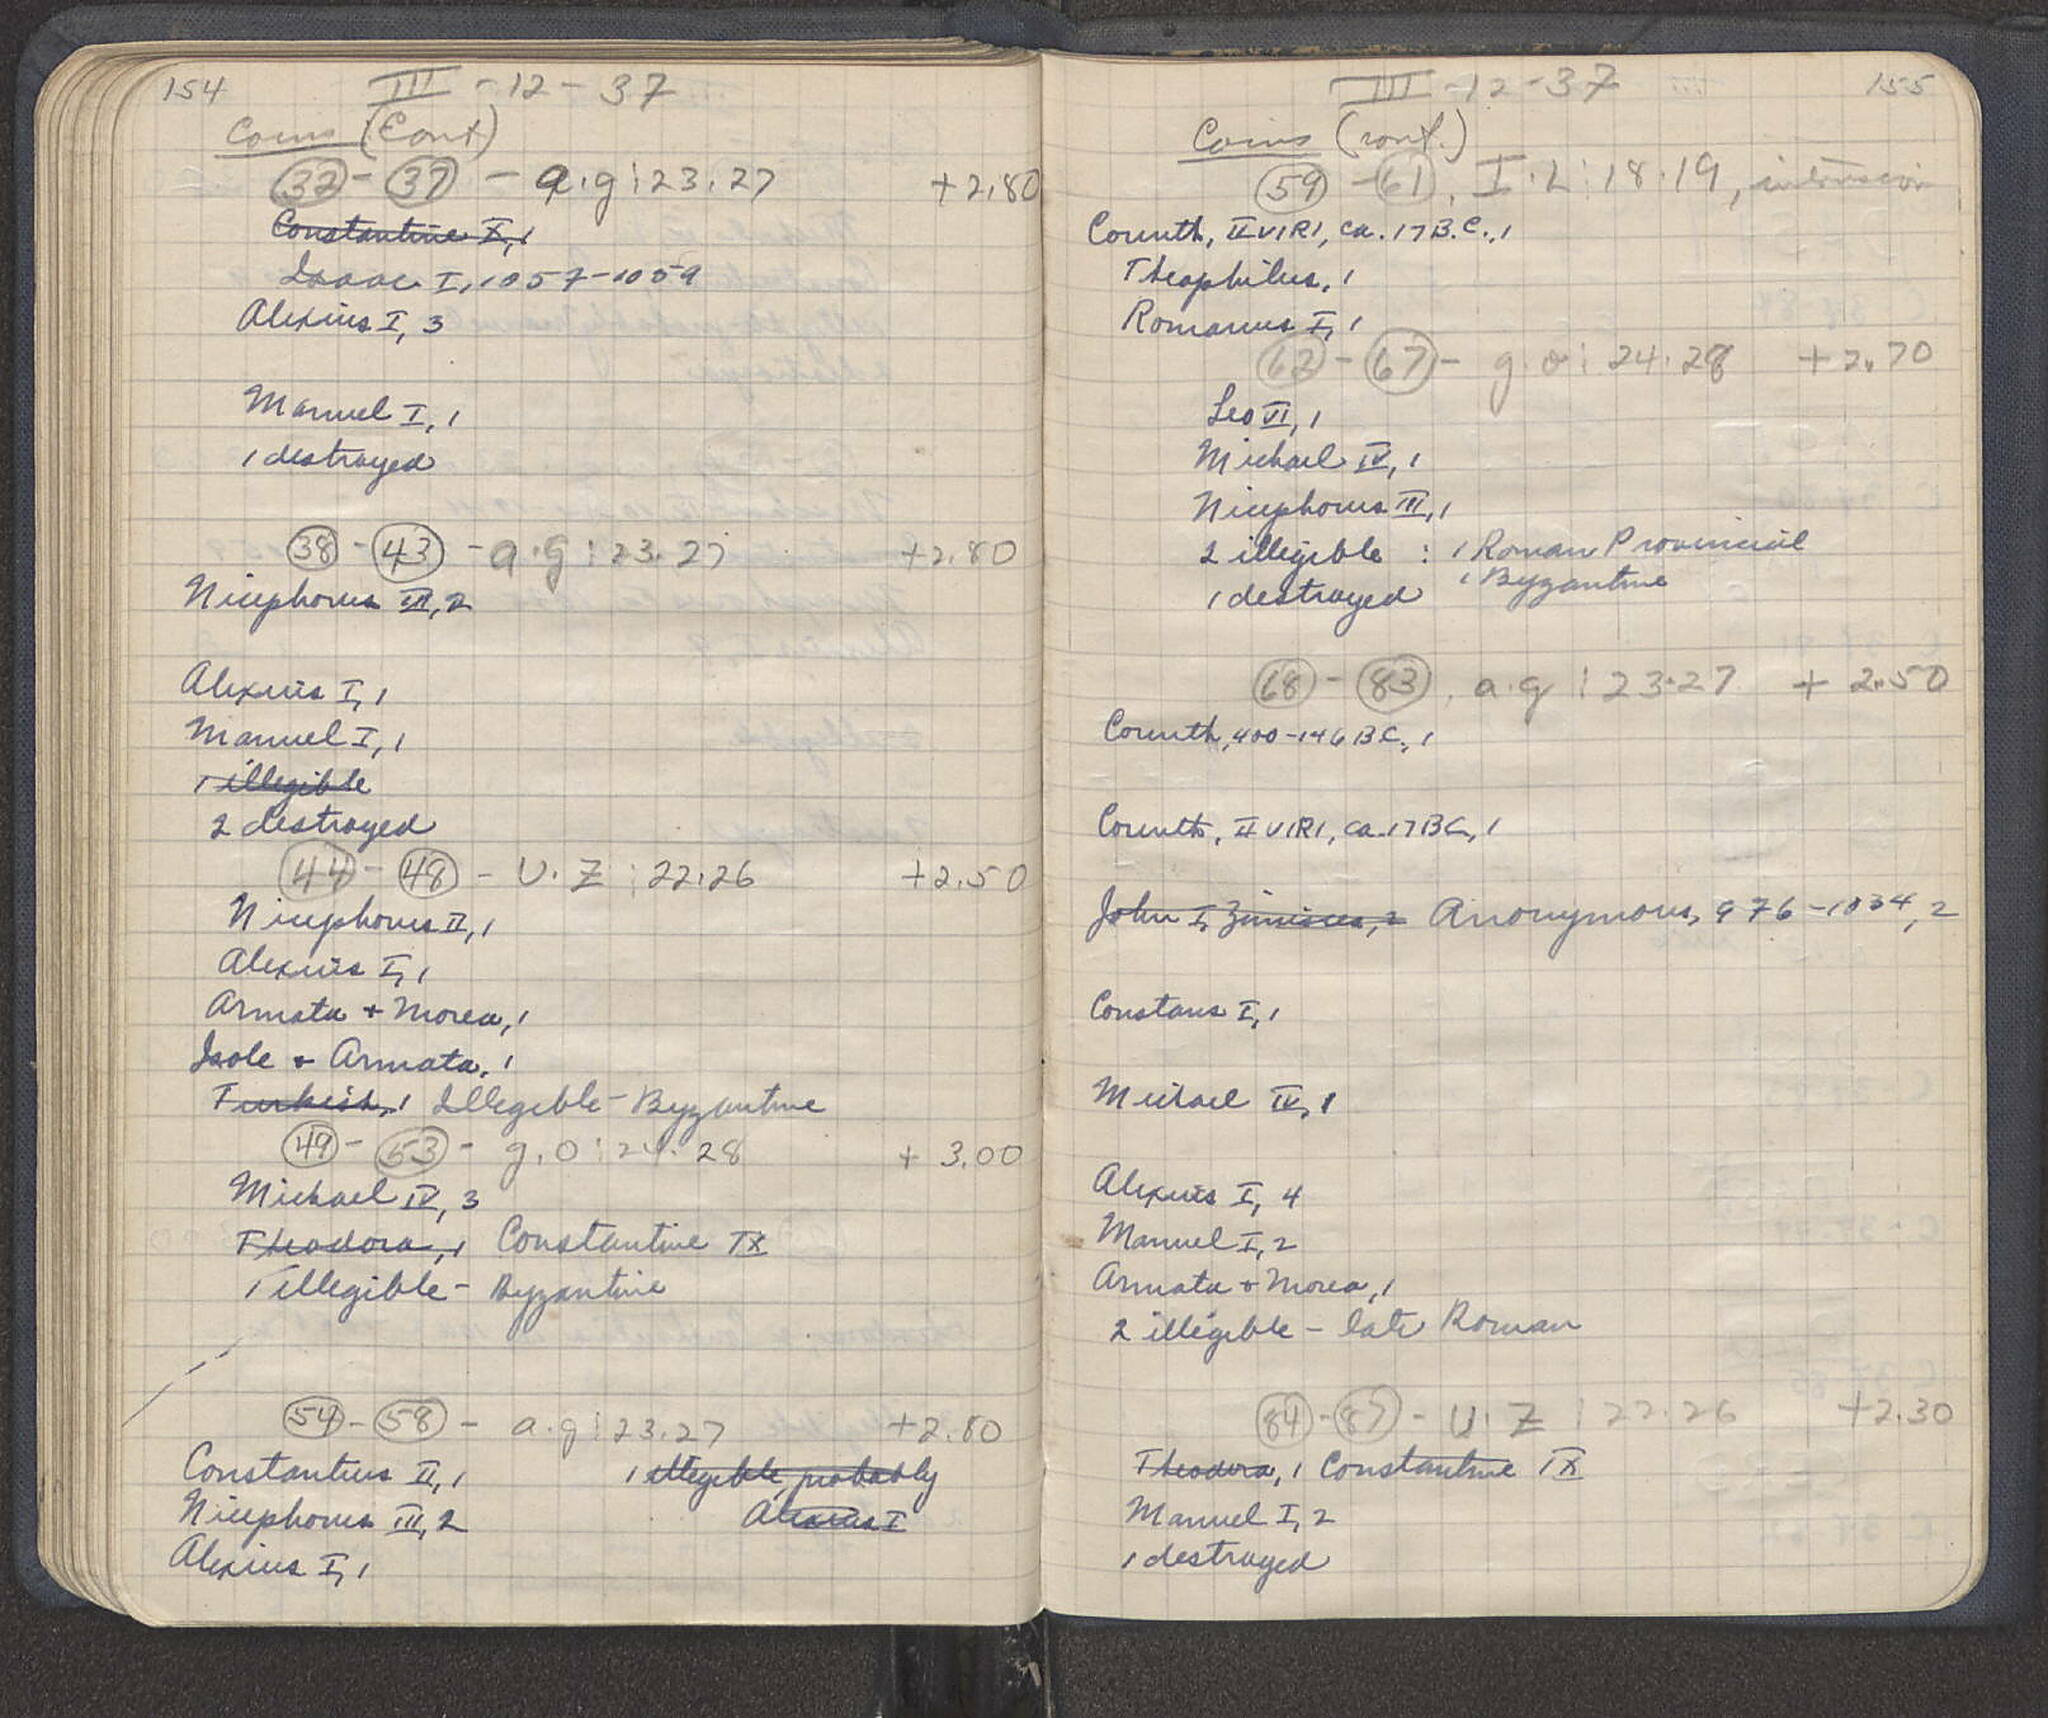 154
III - 12 - 37
Coins (Cont)
32 - 37 - a.g : 23.27 +2.80
Constantine X, 1
Isaac I, 1057-1059
Alexius I, 3
Manuel I, 1
1 destroyed
38 - 43 - a.g : 23.27 +2.80
Nicephorus III, 2
Alexius I, 1
Manuel I, 1
1 illegible
2 destroyed
44 - 48 - U.Z : 22.26 +2.50
Nicephorus II, 1
Alexius I, 1
Armata + Morea, 1
Isole + Armata, 1
Turkish, 1 Illegible - Byzantine
49 - 53 - g.o : 24.28 + 3.00
Michael IV, 3
Theodora, 1 Constantine IX
1 illegible - Byzantine
54 - 58 - a.g : 23.27 +2.80
Constantius II, 1 1 illegible, probably
Nicephorus III, 2 Alexius I
Alexius I, 1
155
III - 12 - 37
Coins (cont.)
59 - 61, I.L : 18.19, intrusion
Corinth, IIVIRI, ca. 17 B.C., 1
Theophilus, 1
Romanus I, 1
62 - 67 - g.o : 24.28 +2.70
Leo VI, 1
Michael IV, 1
Nicephorus III, 1
2 illegible : 1 Roman Provincial
1 Byzantine
1 destroyed
68 - 83, a.g : 23.27 + 2.50
Corinth, 400-146 BC., 1
Corinth, IIVIRI, ca. 17 BC, 1
John I, Zimisces, 2 Anonymous, 976-1034, 2
Constans I, 1
Michael IV, 1
Alexius I, 4
Manuel I, 2
Armata + Morea, 1
2 illegible - late Roman
84 - 87 - U.Z : 22.26 +2.30
Theodora, 1 Constantine IX
Manuel I, 2
1 destroyed